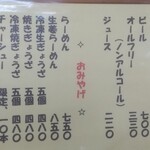 ビール　七〇〇
オールフリー　三三〇
（ノンアルコール）
ジュース　二二〇
☆　おみやげ　☆
らーめん　七五〇
生姜らーめん　八〇〇
冷凍生ぎょうざ　五個
焼きぎょうざ　五個　四八〇
冷凍焼ぎょうざ　五個　四八〇
チャーシュー　一〇本